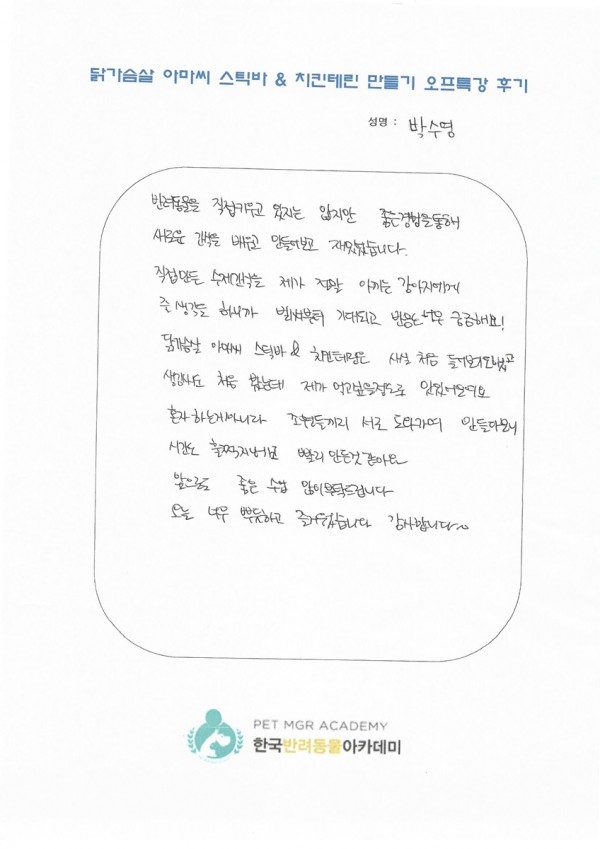 닭가슴살 아마씨 스틱바 & 치킨테린 만들기 오프특강 후기
성명 : 박수영
반려동물을 직접키우고 있지는 않지만 좋은경험을통해
새로운 간식을 배우고 만들어보고 재밌었습니다.
직접만든 수제간식을 제가 정말 아끼는 강아지에게
줄 생각을 하니까 벌써부터 기대되고 반응도 너무 궁금해요!
닭가슴살 아마씨 스틱바 & 치킨테린은 사실 처음 들어보기도했고
생김새도 처음 봤는데 제가 먹고싶을정도로 맛있어보여요
혼자 하는게아니라 조원들끼리 서로 도와가며 만들다보니
시간도 훌쩍지나가고 빨리 만든것 같아요
앞으로도 좋은 수업 많이부탁드립니다
오늘 너무 뿌듯하고 즐거웠습니다 감사합니다~
PET MGR ACADEMY
한국반려동물아카데미